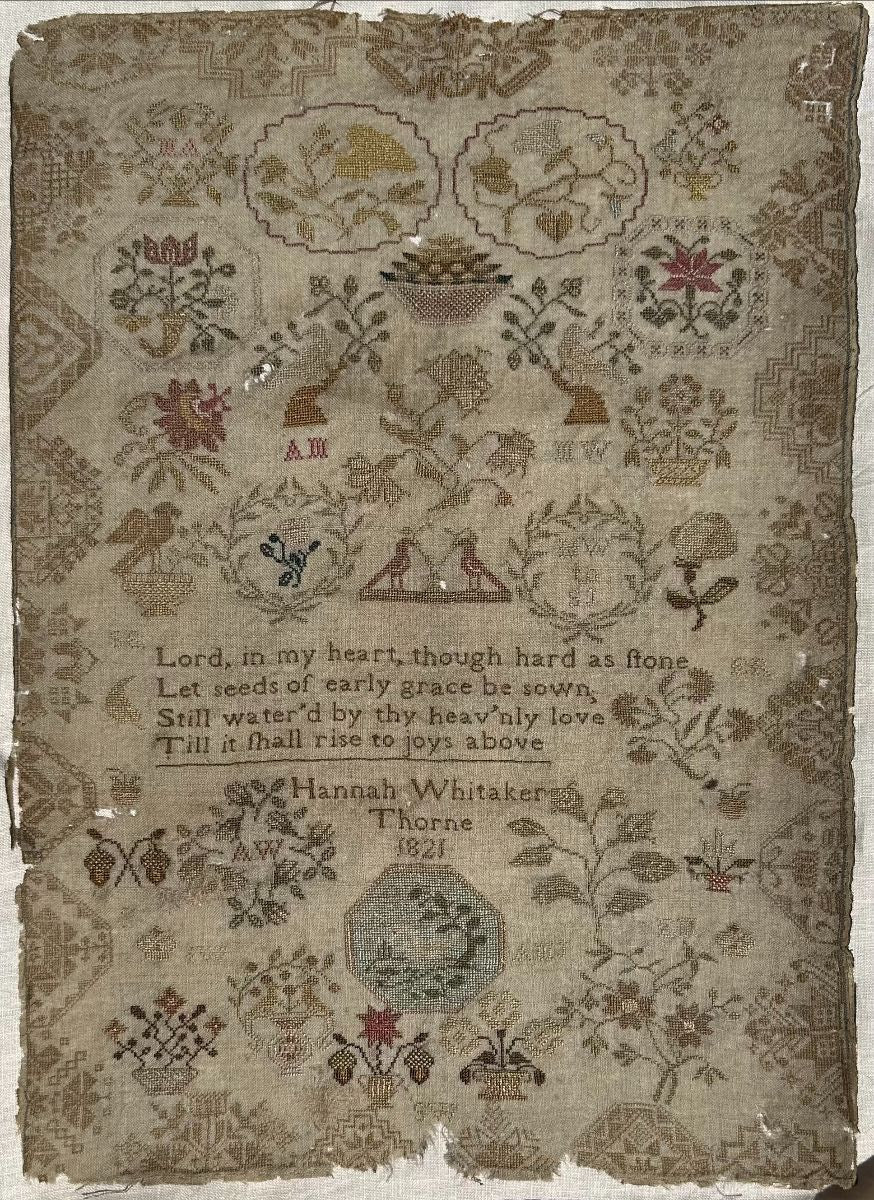 AW
Lord, in my heart, though hard as ſtone
Let seeds of early grace be sown,
Still water'd by thy heav'nly love
Till it ſhall rise to joys above
Hannah Whitaker
Thorne
AW
1821